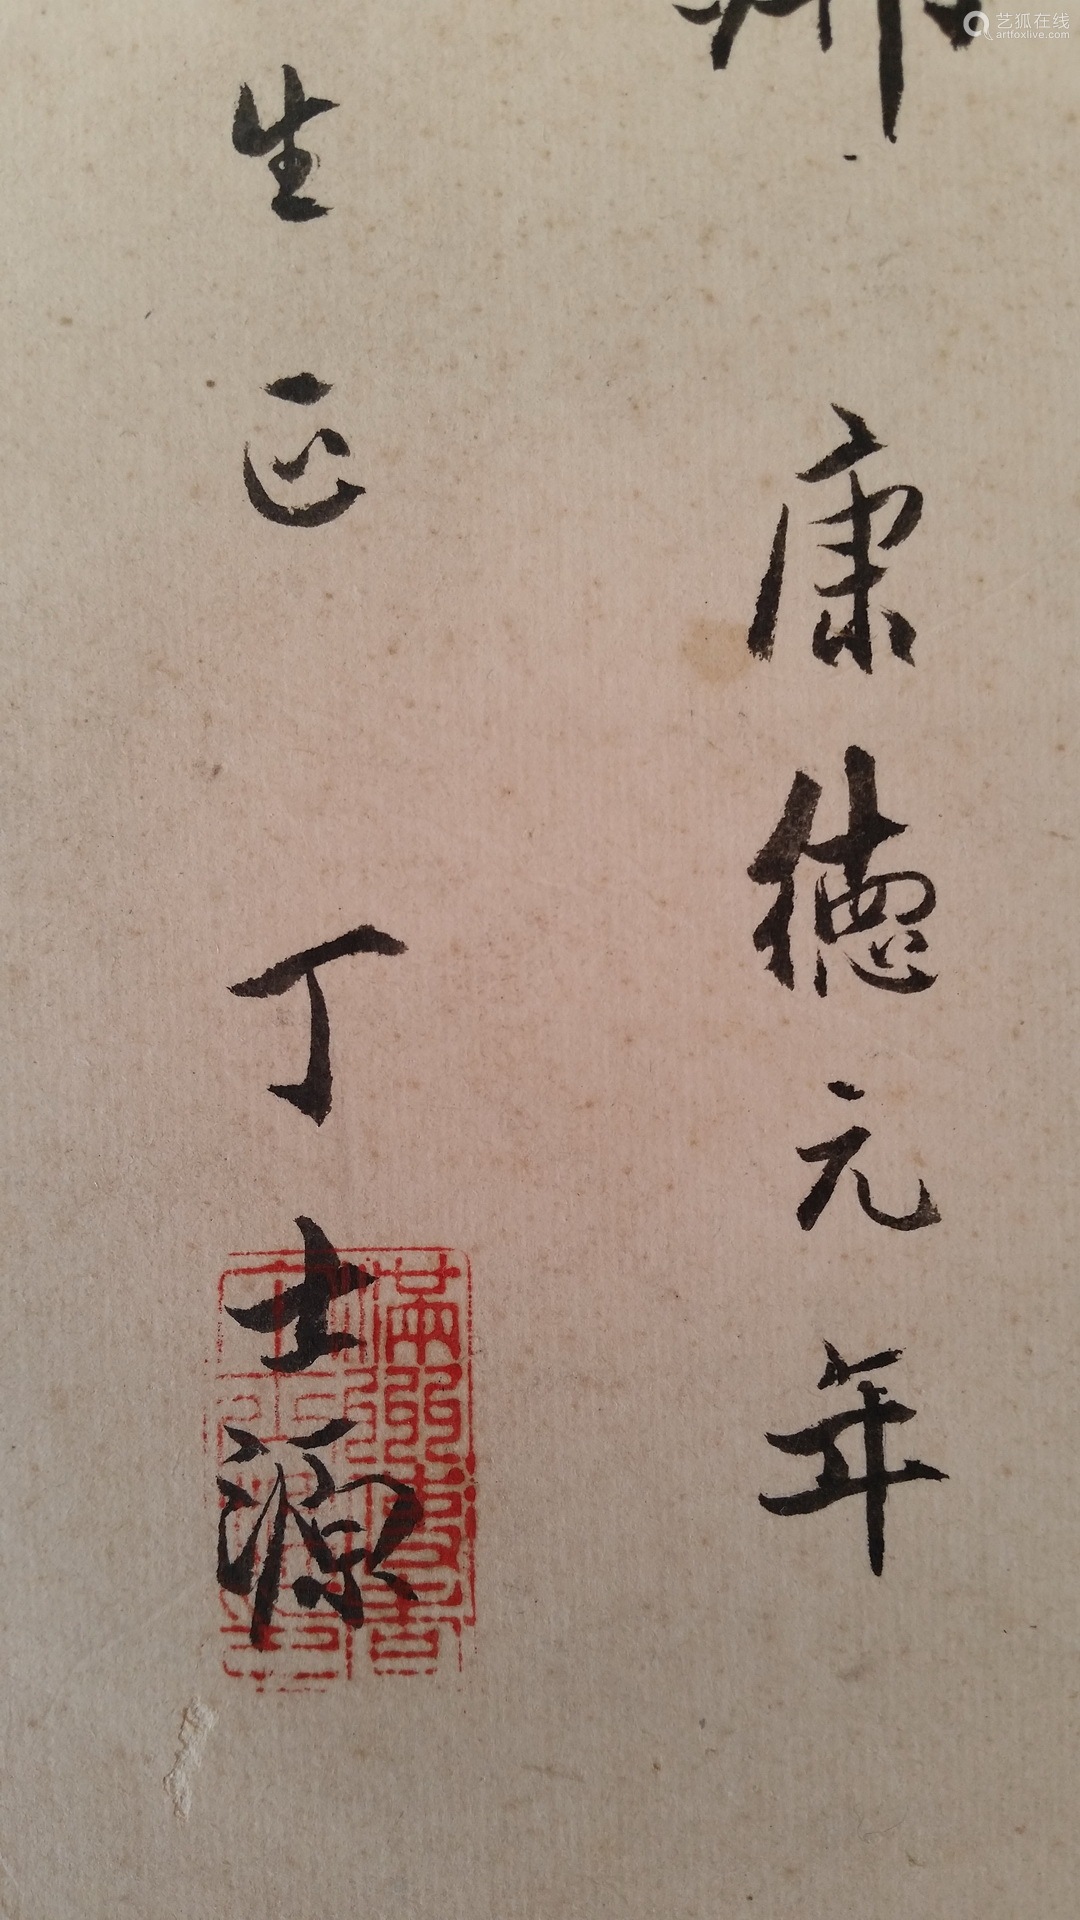 康德元年
生正 丁士源
艺狐在线
artfoxlive.com